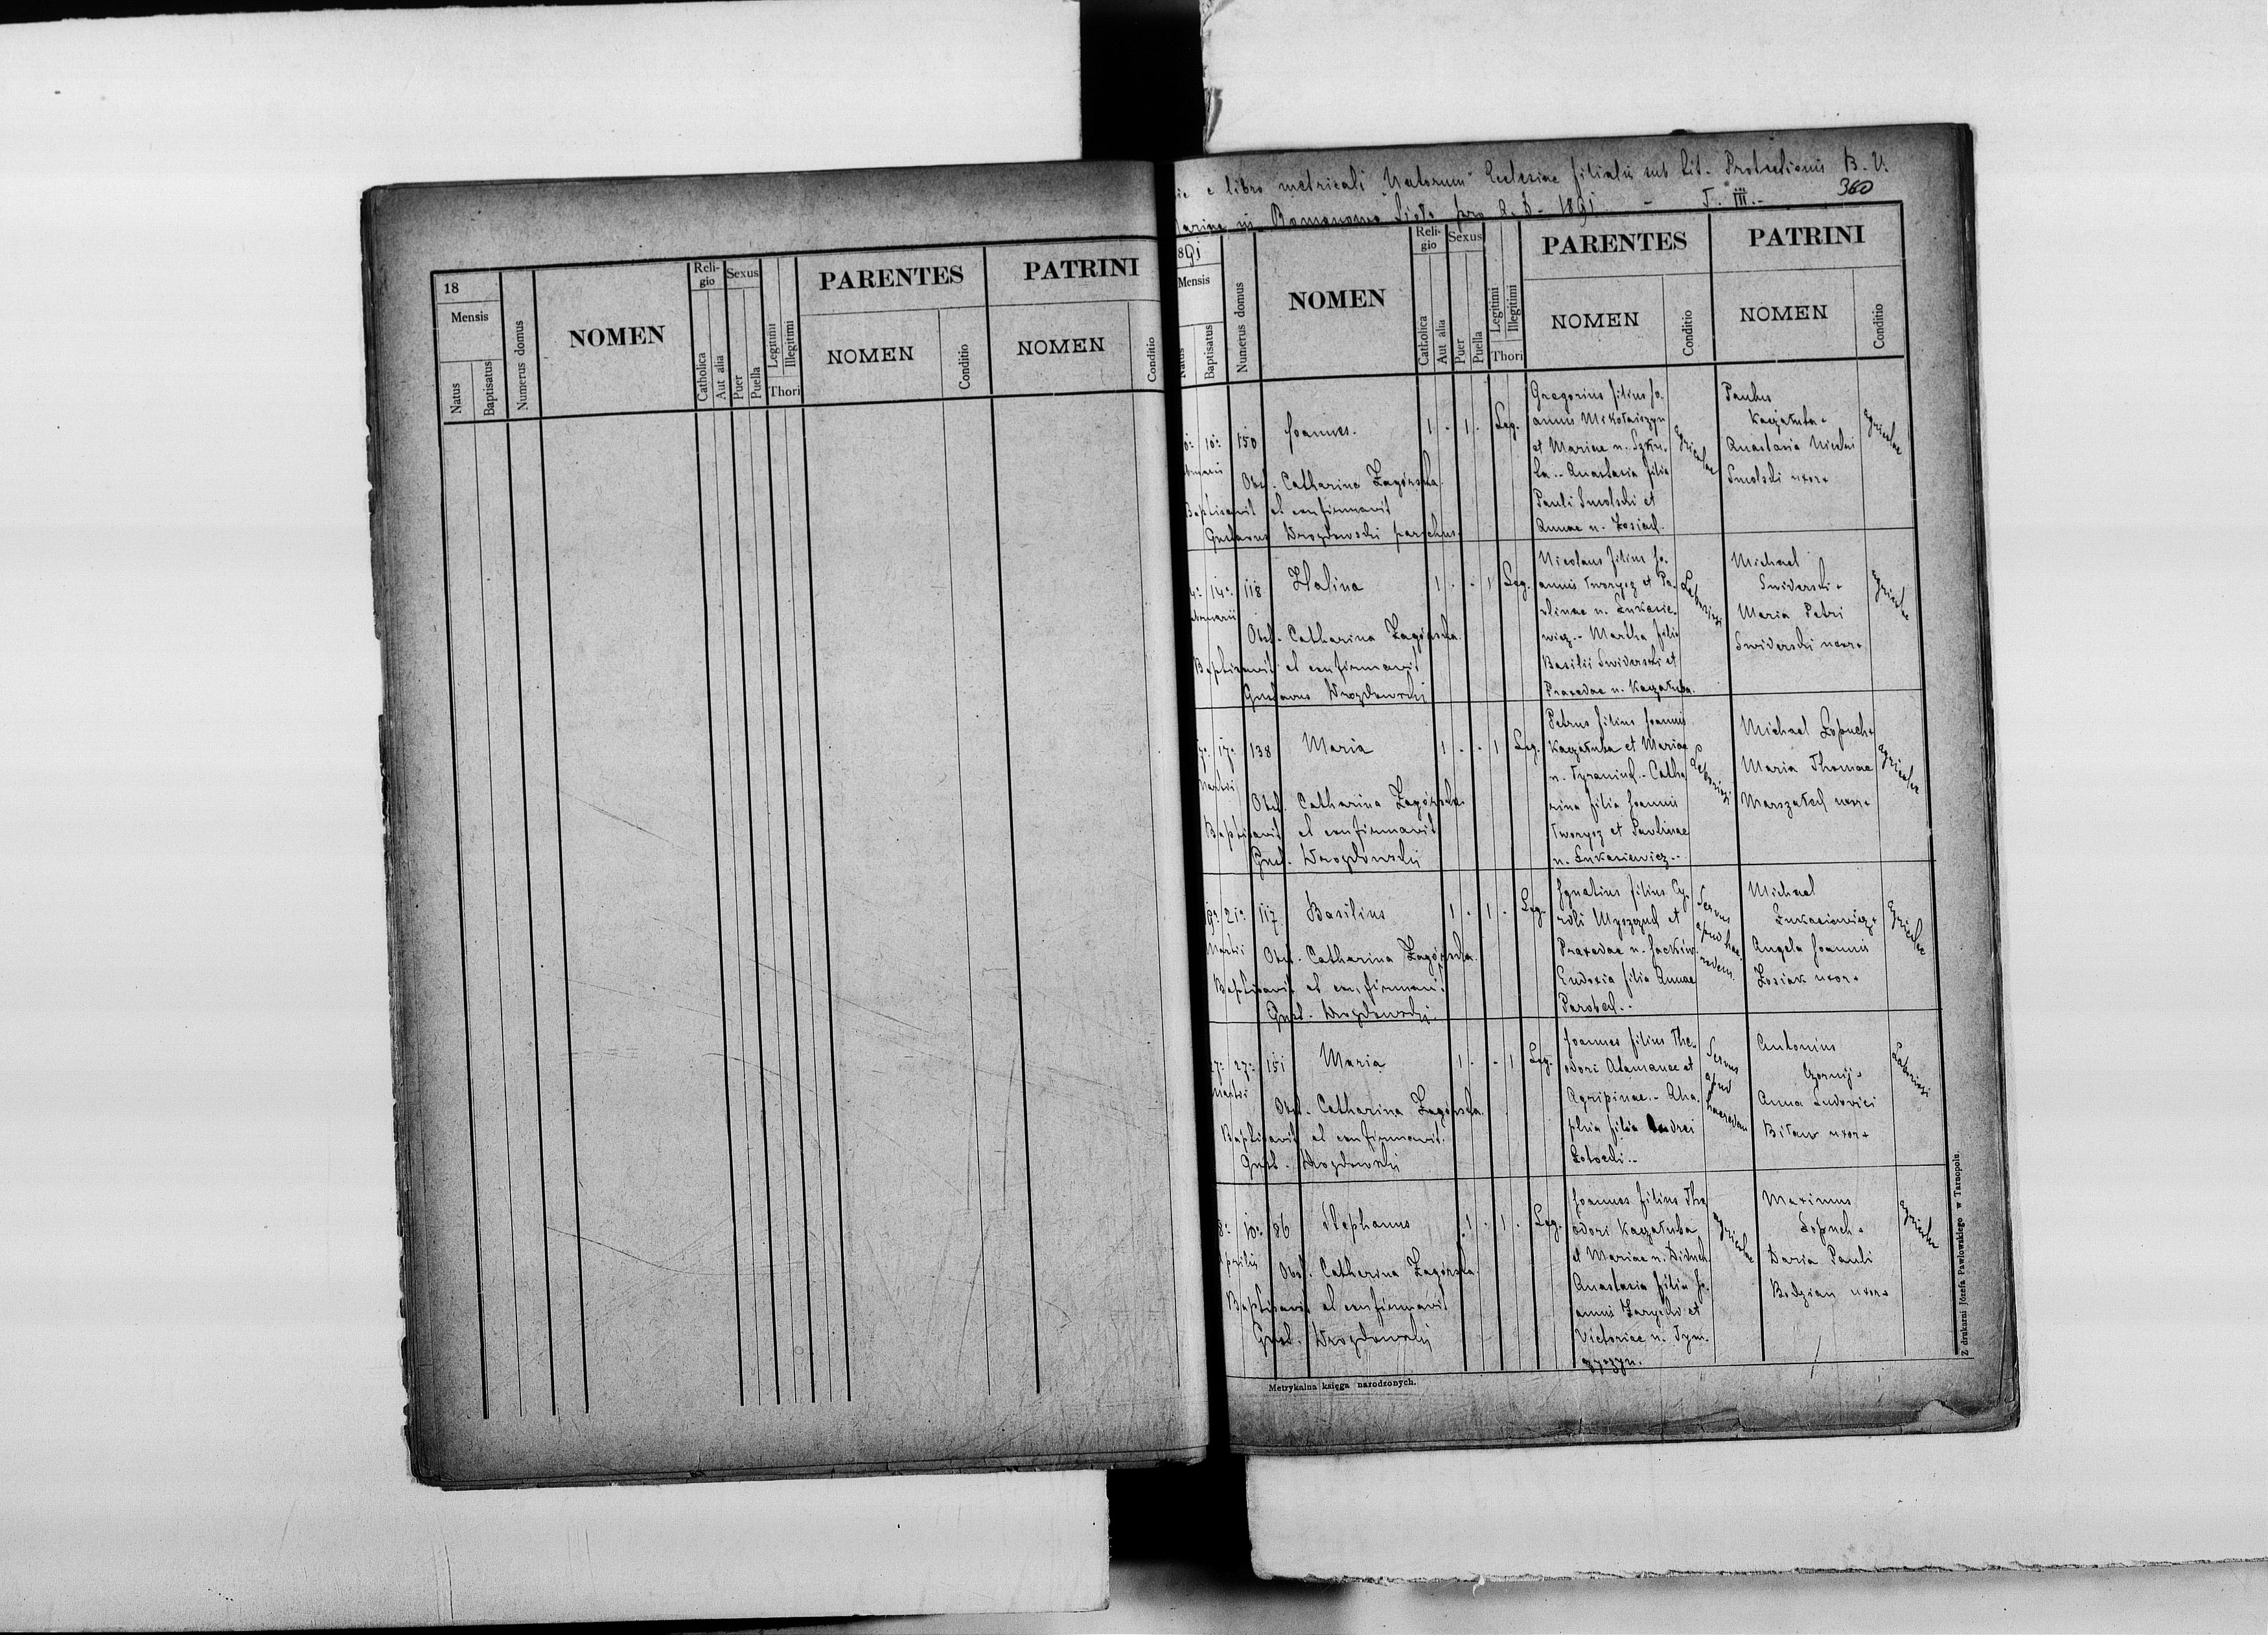 18
Mensis
Natus
Baptisatus
Numerus domus
NOMEN
Reli-
gio
Catholica
Aut alia
Sexus
Puer
Puella
Legitimi
Illegitimi
Thori
PARENTES
NOMEN
Conditio
PATRINI
NOMEN
Conditio
e libro metricali Natorum Ecclesiae filialis sub tit. Protectionis B. V.
360
in Romanowe Sioło pro A. D. 1891 - T. III.-
891
Mensis
Natus
Baptisatus
Numerus domus
NOMEN
Reli-
gio
Catholica
Aut alia
Sexus
Puer
Puella
Legitimi
Illegitimi
Thori
PARENTES
NOMEN
Conditio
PATRINI
NOMEN
Conditio
10. 150 Joannes. 1 . 1 . Leg.
Obst. Catharina Zagórska.
Baptisavit et confirmavit
Gustavus Drozdowski parochus.
Gregorius filius Jo-
annis Mikołaiczyn
et Mariae n.
Anastasia filia
Pauli Smolski et
Annae n. Łosiak.
Agricolae
Paulus
Kaczałuba.
Anastasia Nicolai
Smolski uxor.
Agricolae
14. 118 Halina 1 . . 1 Leg.
Obst. Catharina Zagórska.
Baptisavit et confirmavit
Gustavus Drozdowskij
Nicolaus filius Jo-
annis Tworycz et Pa-
vlinae n. Łukasie-
wicz.- Martha filia
Basilii Swiderski et
Praxedae n. Kaczałuba.
Laboriosi
Michael
Swiderski.
Maria Petri
Swiderski uxor.
Agricolae
17. 17. 138 Maria 1 . . 1 Leg.
Martii
Obst. Catharina Zagórska.
Baptisavit et confirmavit
Gust. Drozdowskij
Petrus filius Joannis
Kaczałuba et Mariae
n. Tyraniuk.- Catha
rina filia Joannis
Tworycz et Pavlinae
n. Łukasiewicz.-
Laboriosi
Michael Łopuch.
Maria Thomae
Marszałek uxor.
Agricolae
21. 117 Basilius 1 . 1 . Leg.
Martii
Obst. Catharina Zagórska.
Baptisavit et confirmavit
Gust. Drozdowskij.
Ignatius filius Cy-
rilli et
Praxedae n. Jackiw.
Eudoxia filia Annae
Parobek.-
Servus
apud hae-
redem.
Michael
Łukasiewicz.
Angela Joannis
Łosiak uxor.
Agricolae
27. 27. 151 Maria 1 . . 1 Leg.
Martii
Obst. Catharina Zagórska.
Baptisavit et confirmavit.
Gust. Drozdowskij
Joannes filius The-
odori Atamance et
Agripinae.- Aha-
phia filia Andrei
Servus
apud
haeredem
Antonius
Czornij.
Anna Ludovici
Biław uxor.
Laboriosi
8. 10. 86 Stephanus 1 . 1 . Leg.
Aprilis
Obst. Catharina Zagórska.
Baptisavit et confirmavit
Gust. Drozdowskij
Joannes filius The
odori Kaczałuba
et Mariae n. Diduch.
Anastasia filia Jo-
annis et
Victoriae n. Tym-
czyszyn.
Agricolae
Maximus
Łopuch.
Daria Pauli
Bodzian uxor.
Agricolae
Metrykalna księga narodzonych.
Z drukarni Józefa Pawłowskiego w Tarnopolu.